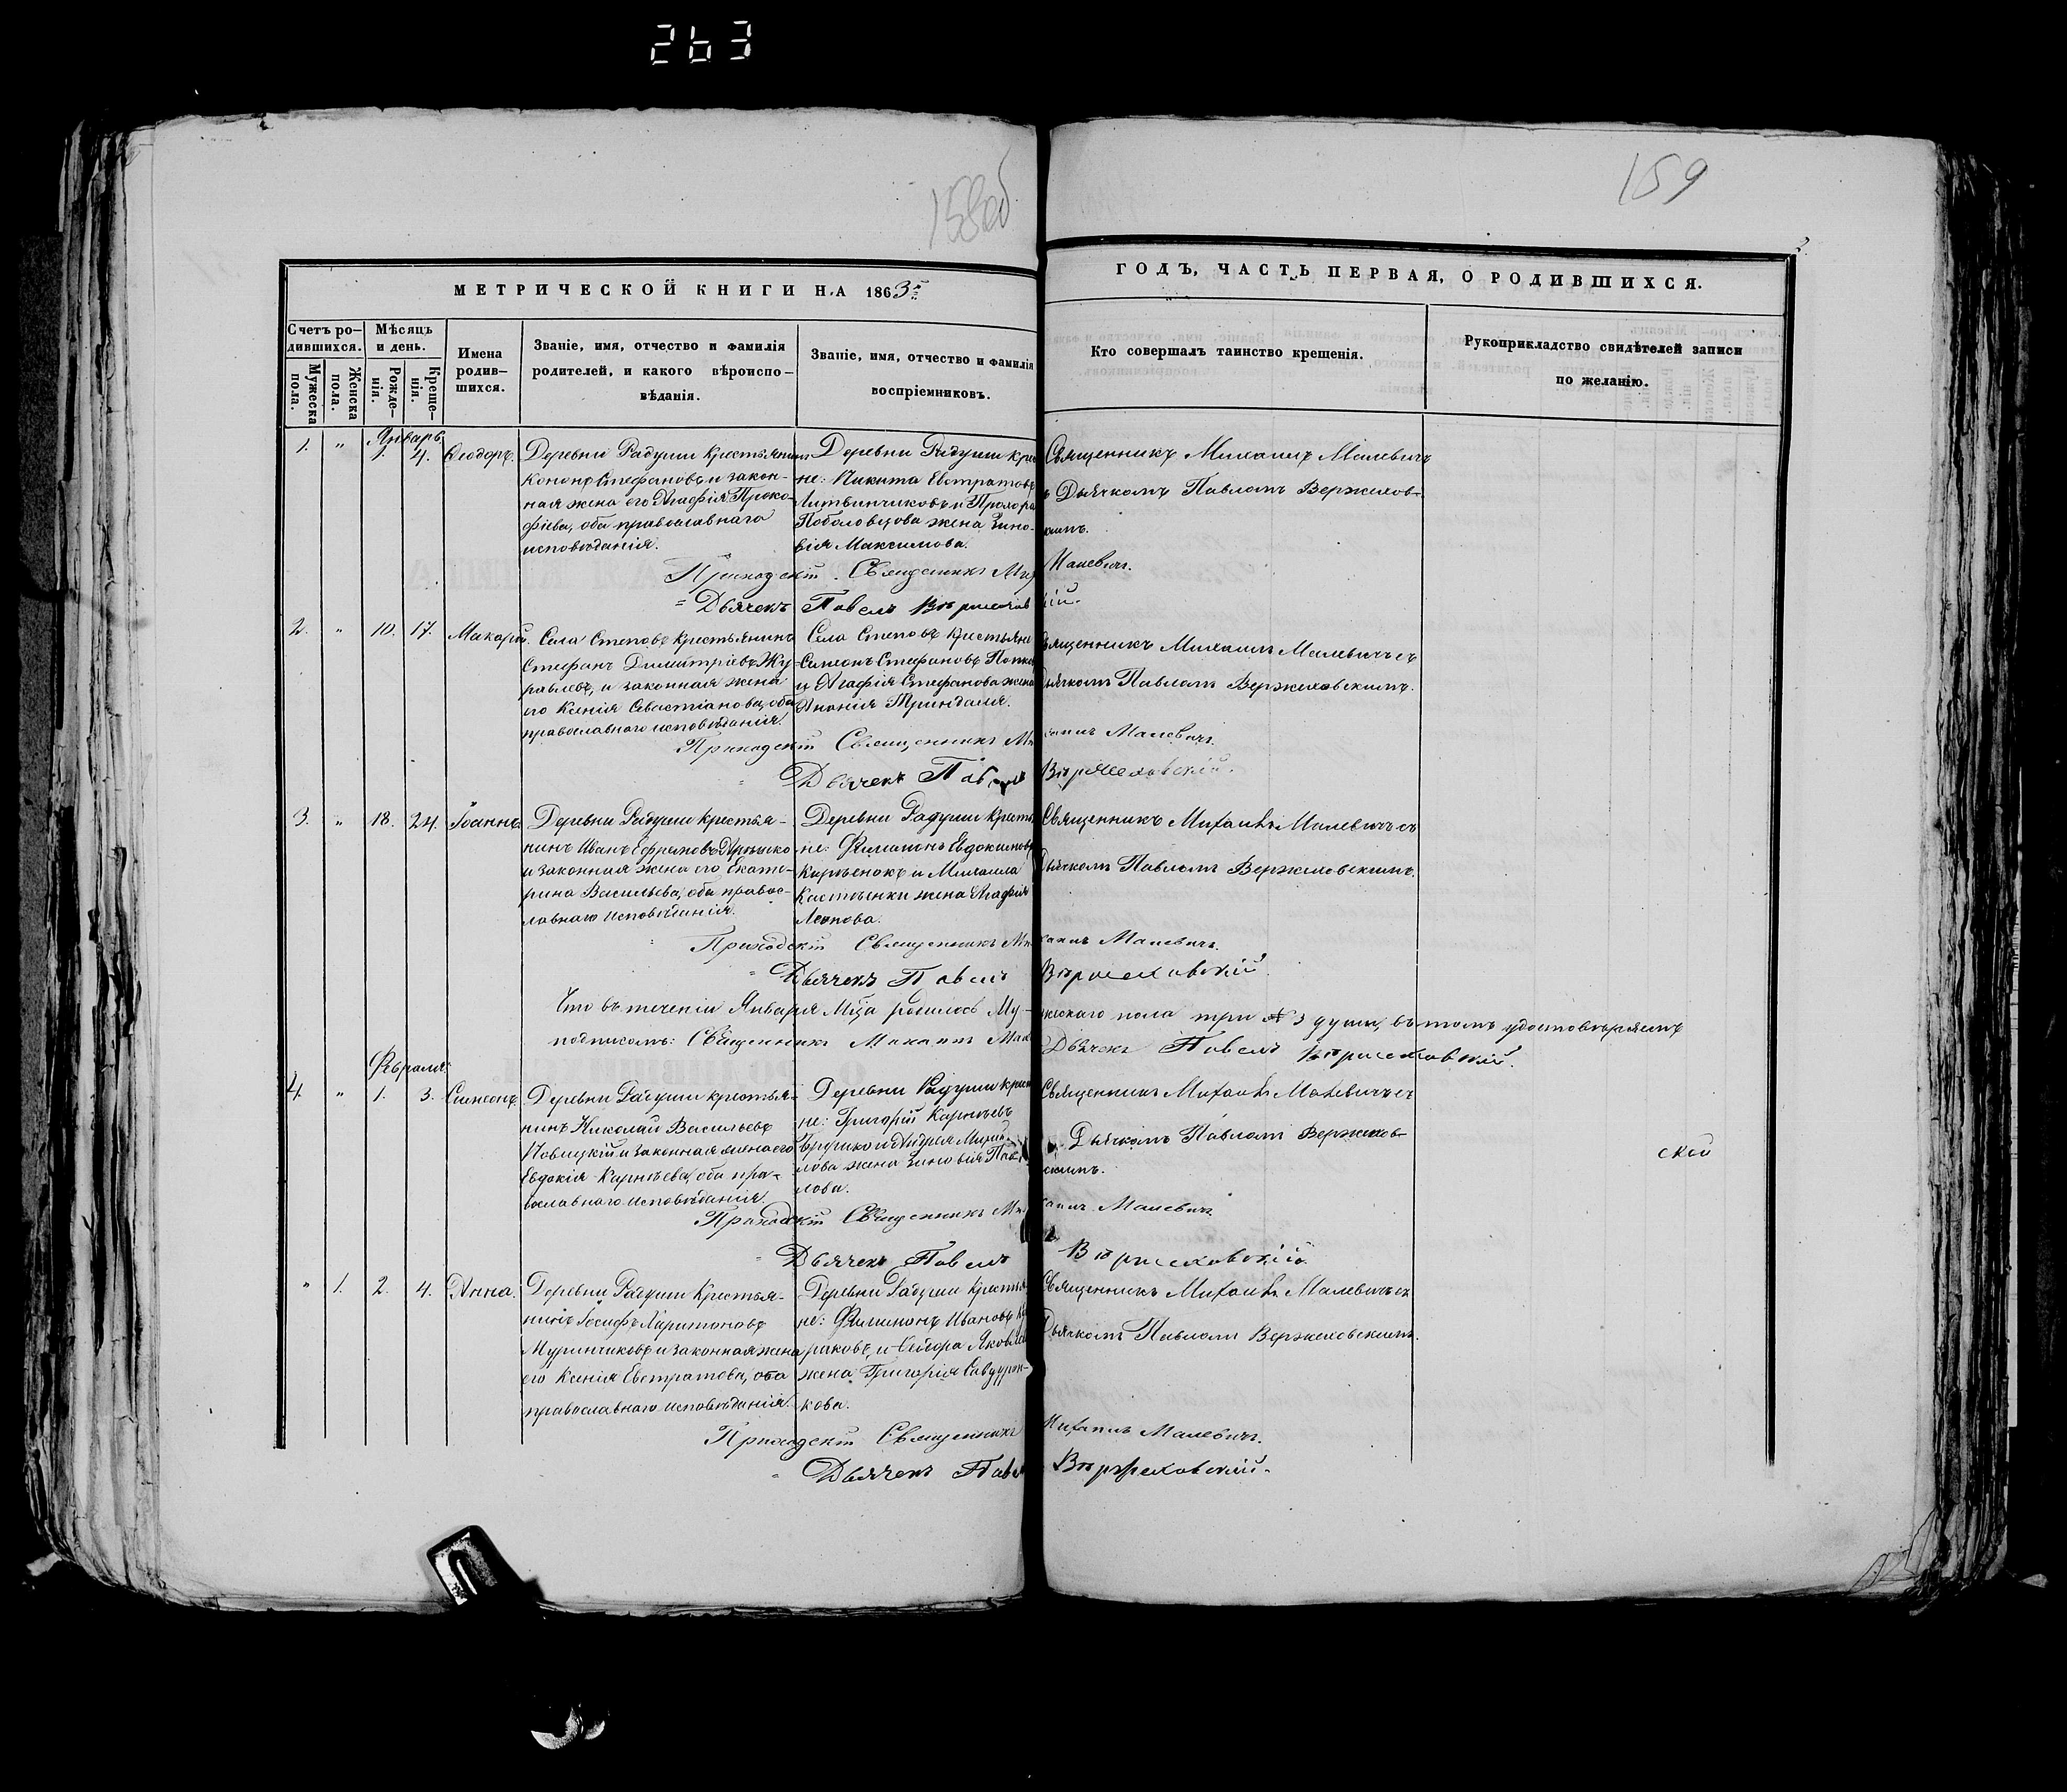 263
158об
159
МЕТРИЧЕСКОЙ КНИГИ НА 1863й
ГОДЪ, ЧАСТЬ ПЕРВАЯ, О РОДИВШИХСЯ.
Счетъ ро-
дившихся.
Мужеска
пола.
Женска
пола.
Мѣсяцъ
и день.
Рожде-
нія.
Креще-
нія.
Имена
родив-
шихся.
Званіе, имя, отчество и фамилія
родителей, и какого вѣроиспо-
вѣданія.
Званіе, имя, отчество и фамилія
воспріемниковъ.
Кто совершалъ таинство крещенія.
Рукоприкладство свидѣтелей записи
по желанію.
Январь
1. " 1. 4. Ѳеодоръ.
Деревни Радуши крестьянинъ
Кононъ Стефановъ и закон-
ная жена его Агафія Проко-
фіева, оба православнаго
исповѣданія.
Деревни Радуши крес
не: Никита Евстратовъ
Литвинчиковъ и Прохора
Поболовцова жена Зино-
вія Максимова.
Священникъ Михаилъ Малевичъ
ъ Дьячкомъ Павломъ Вержеховс-
кимъ.
Приходскій Священникъ Мих Малевичъ.
" Дьячекъ Павелъ Вержехов кій.
2. " 10. 17. Макарій.
Села Степовъ крестьянинъ
Стефанъ Димитріевъ Жу-
равлевъ, и законная жена
его Ксенія Севастіанова, оба
православнаго исповѣданія.
Села Степовъ крестьяне
Симеонъ Стефановъ
и Агафія Стефанова жена
Ананія Триндаля.
вященникъ Михаилъ Малевичъ съ
Дьячкомъ Павломъ Вержеховскимъ.
Приходскій Священникъ Ми хаилъ Малевичъ.
" Дьячекъ Павелъ Вержеховскій.
3. " 18. 24. Іоаннъ.
Деревни Радуши крестья-
нинъ Иванъ Ефремовъ
и законная жена его Екате-
рина Васильева, оба правос-
лавнаго исповѣданія.
Деревни Радуши кресть
не: Филимонъ Евдокимовъ
Карпенокъ и Михаила
Костенки жена Агафія
Леонова.
Священникъ Михаилъ Малевичъ съ
Дьячкомъ Павломъ Вержеховскимъ.
Приходскій Священникъ Ми хаилъ Малевичъ.
" Дьячекъ Павелъ Вержеховскій.
Что въ теченіи Января Мца родилось Му- жескаго пола три 3 души, въ томъ удостовѣряемъ
подписомъ: Священникъ Михаилъ Мал Дьячекъ Павелъ Вержеховскій.
Февраля
4. " 1. 3. Симеонъ.
Деревни Радуши крестья-
нинъ Николай Васильевъ
Новицкій и законная жена его
Евдокія Карнѣева, оба пра-
вославнаго исповѣданія.
Деревни Радуши крест
не: Григорій Карнѣевъ
и Андрея
жена Зиновія Пав-
лова.
Священникъ Михаилъ Малевичъ съ
Дьячкомъ Павломъ Вержехов-
скимъ.
ской
Приходскій Священникъ Ми хаилъ Малевичъ.
" Дьячекъ Павелъ Вержеховскій.
" 1. 2. 4. Анна.
Деревни Радуши Крестья-
нинъ Іосифъ Харитоновъ
Муринчиковъ и законная жена
его Ксенія Евстратова, оба
православнаго исповѣданія.
Деревни Радуши крестья
не: Филимонъ Ивановъ
раковъ, и Ѳеодора Яковлева
жена Григорія
кова.
Священникъ Михаилъ Малевичъ съ
Дьячкомъ Павломъ Вержеховскимъ.
Приходскій Священникъ Михаилъ Малевичъ.
" Дьячекъ Павел Вержеховскій.